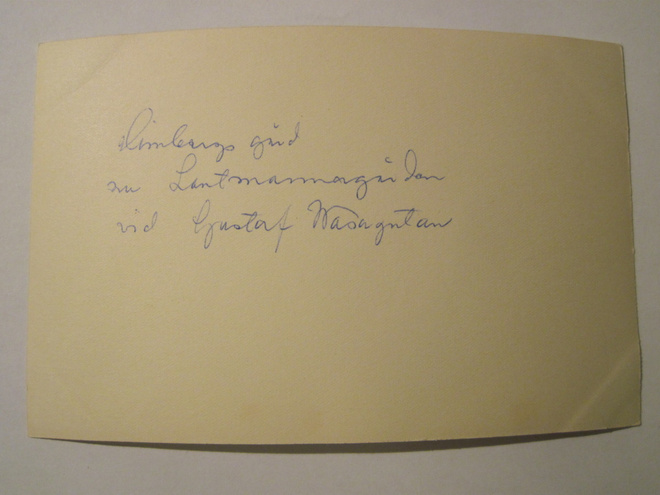 gård
nu Lantmannagården
vid Gustaf Wasagatan